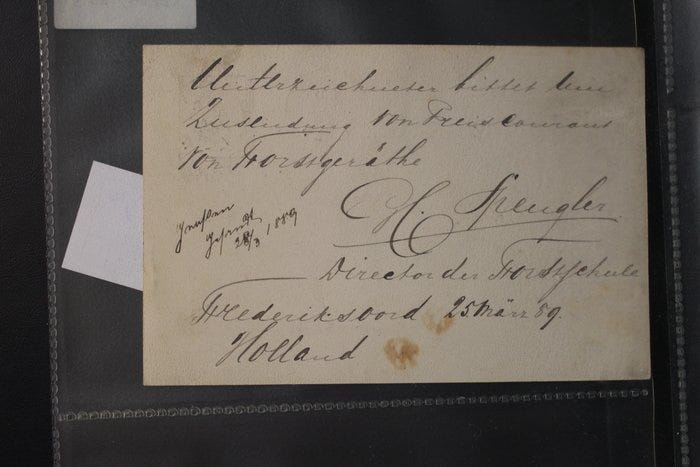 Unterzeichneter bittet um
Zusendung von Preiscourant
von Forstgeräthe
H. Spengler
gesandt
28/3 1889
Director der Forstschule
Frederiksoord 25 März 89.
Holland